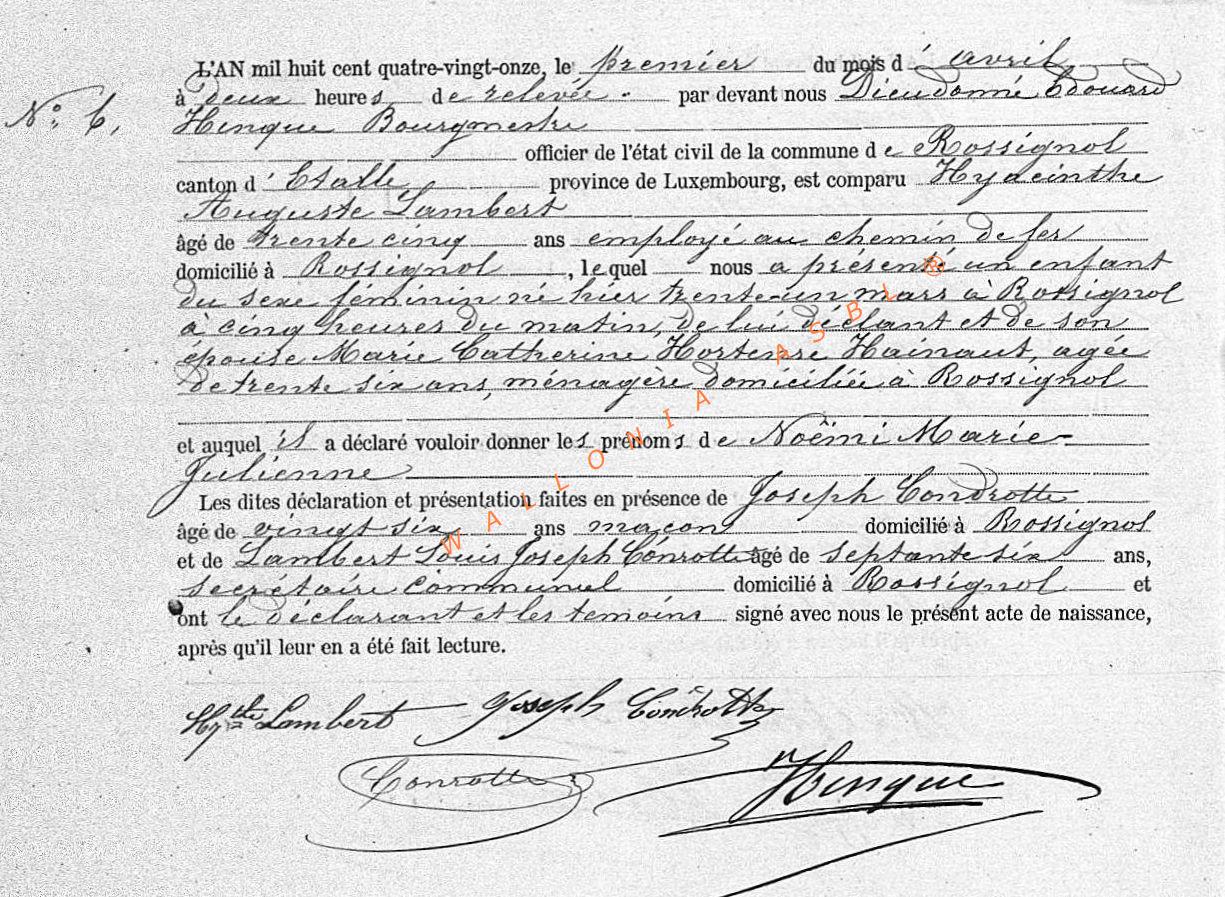 L'AN mil huit cent quatre-vingt-onze, le premier du mois d'avril
N° 6, à deux heures de relevée . par devant nous Dieudonné Edouard
Hinque Bourgmestre
officier de l'état civil de la commune de Rossignol
canton d'Etalle province de Luxembourg, est comparu Hyacinthe
Auguste Lambert
âgé de trente cinq ans employé au chemin de fer
domicilié à Rossignol, lequel nous a présenté un enfant
du sexe féminin né hier trente-un mars à Rossignol
à cinq heures du matin, de lui déclant et de son
épouse Marie Catherine Hortense Hainaut, agée
de trente six ans, ménagère domiciliée à Rossignol
et auquel il a déclaré vouloir donner les prénoms de Noëmi Marie-
Julienne
Les dites déclaration et présentation faites en présence de Joseph Condrotte
âgé de vingt six ans maçon domicilié à Rossignol
et de Lambert Louis Joseph Conrotte âgé de septante six ans,
secrétaire communal domicilié à Rossignol et
ont le déclarant et les témoins signé avec nous le présent acte de naissance,
après qu'il leur en a été fait lecture.
Hythe Lambert Joseph Condrotte
Conrotte Hinque
WALLONIA ASBL ®